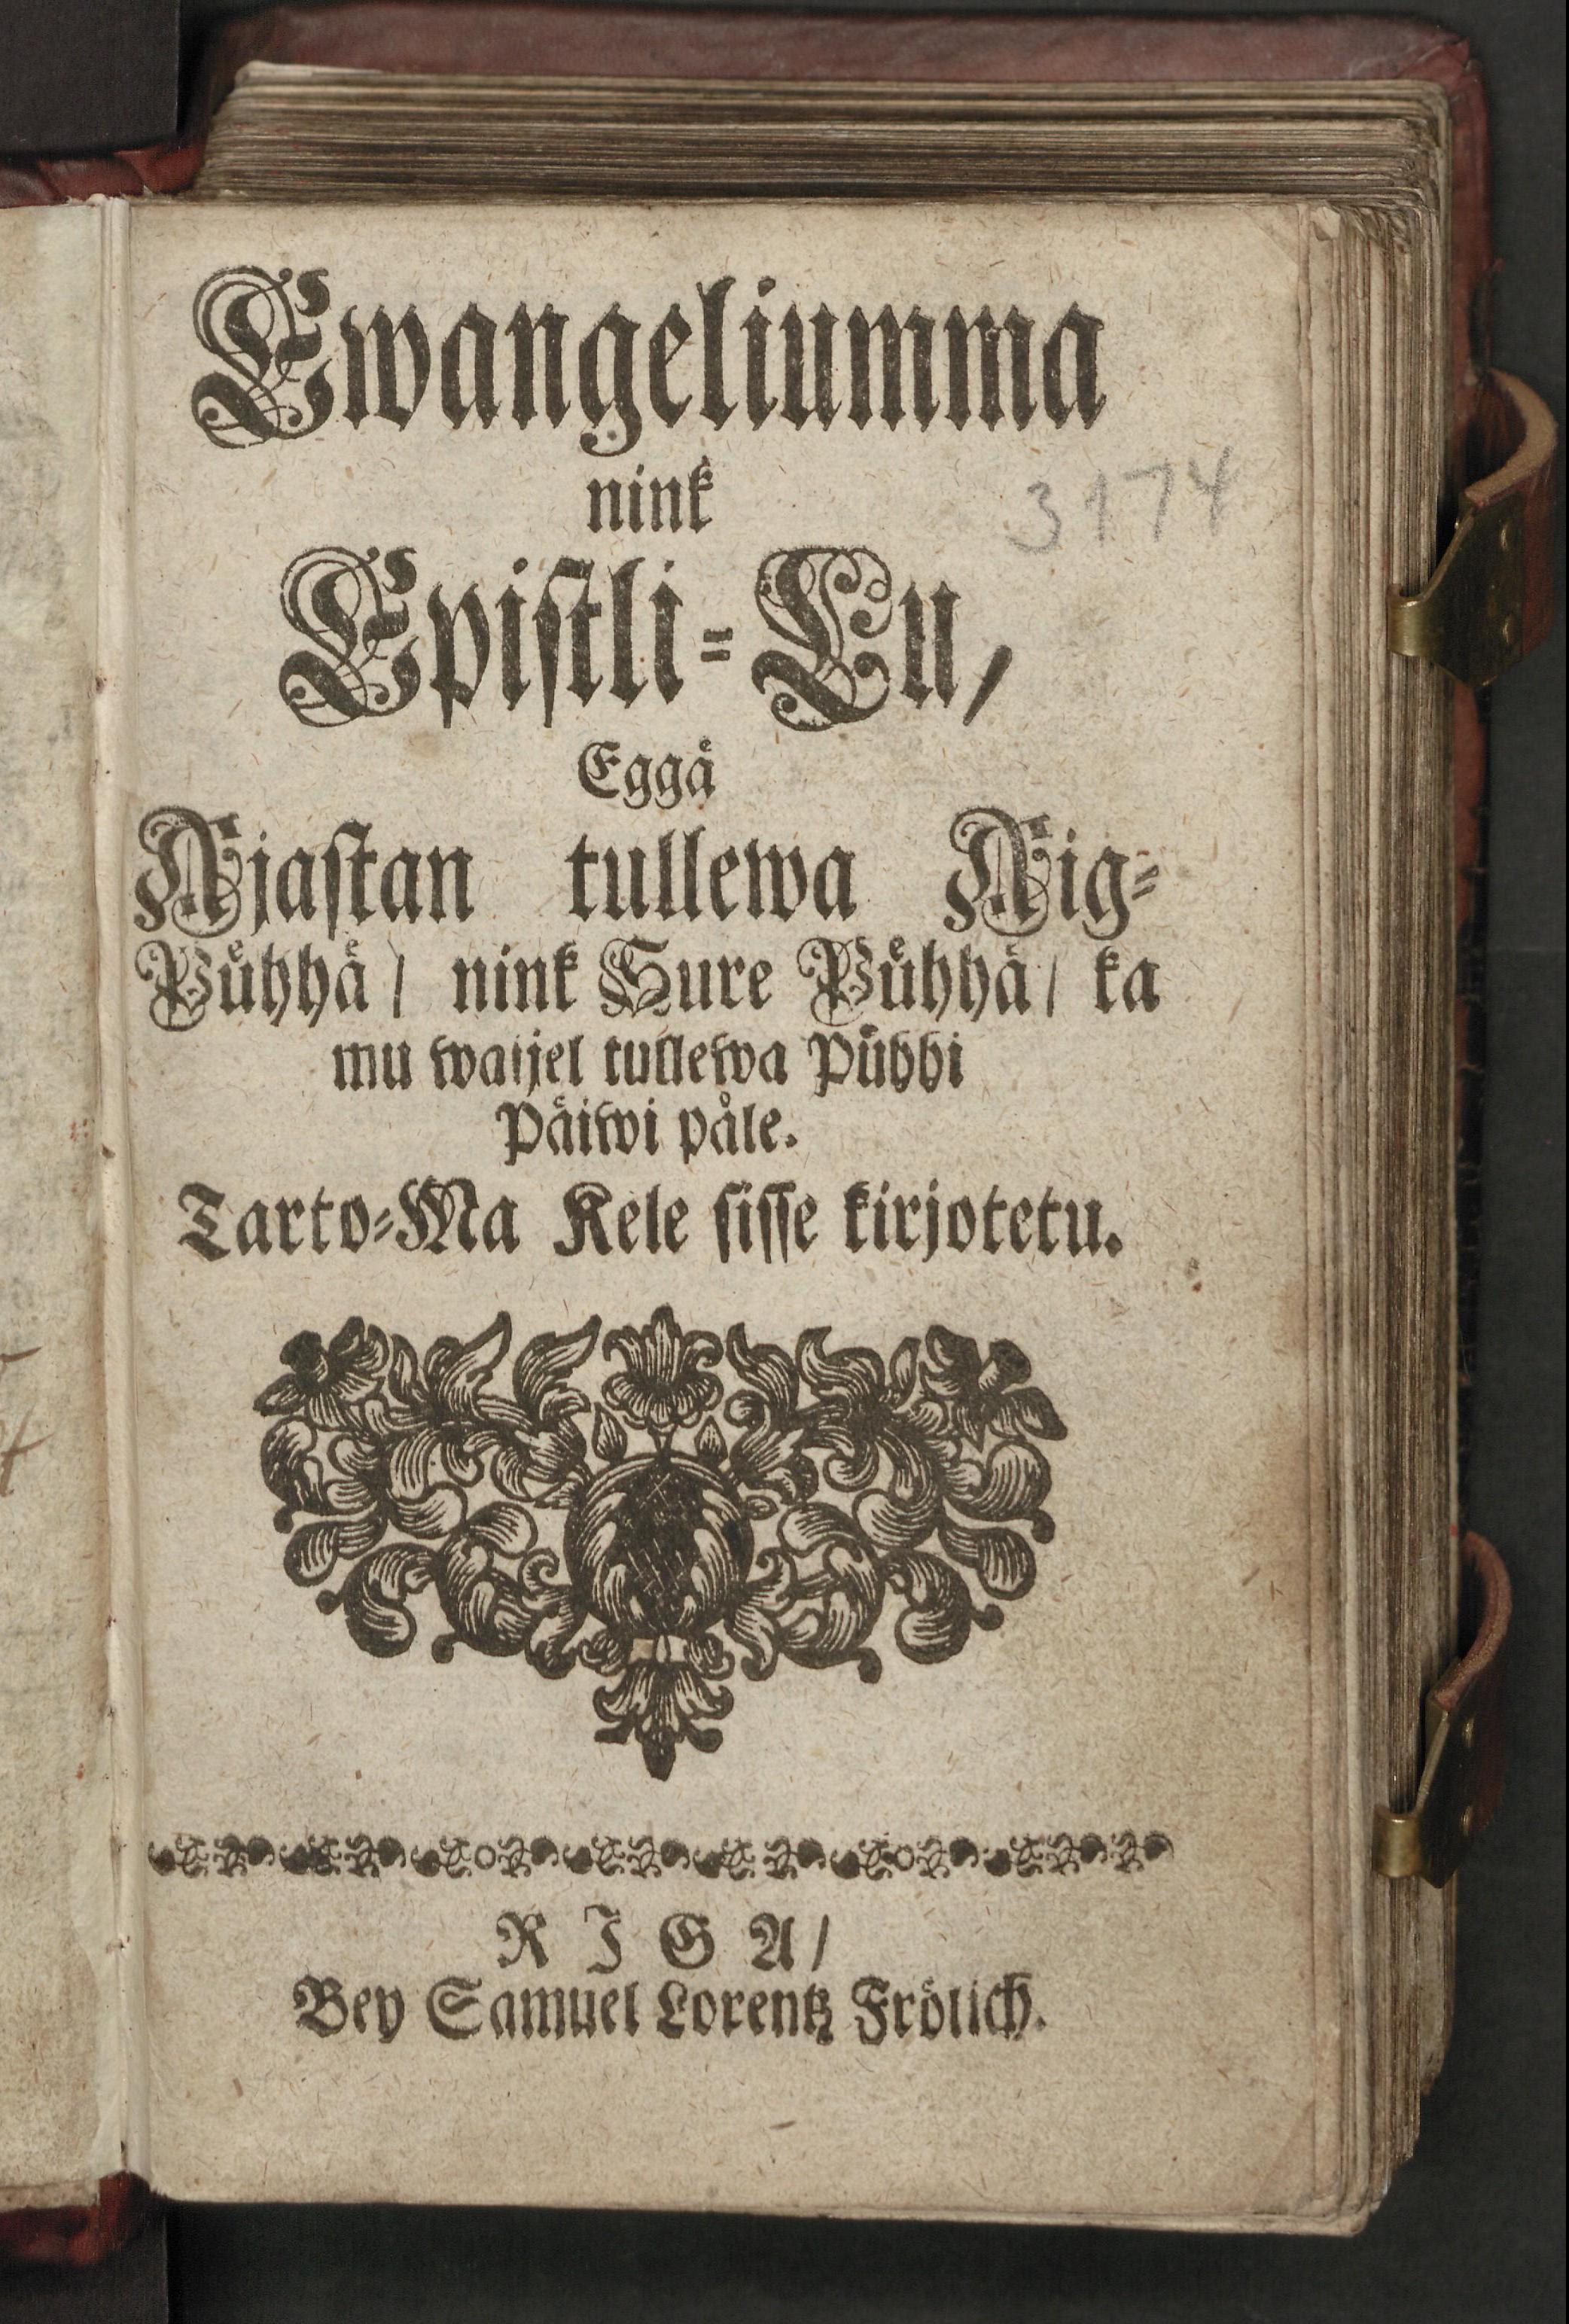 Ewangeliumma
nink
3174
Epistli-Lu,
Eggå
Ajastan tullewa Aig-
Pühhä / nink Sure Pühhä / ka
mu waijel tullewa Pühhi
Päiwi påle.
Tarto-Ma Kele sisse kirjotetu.
RIGA/
Bey Samuel Lorentz Frölich.